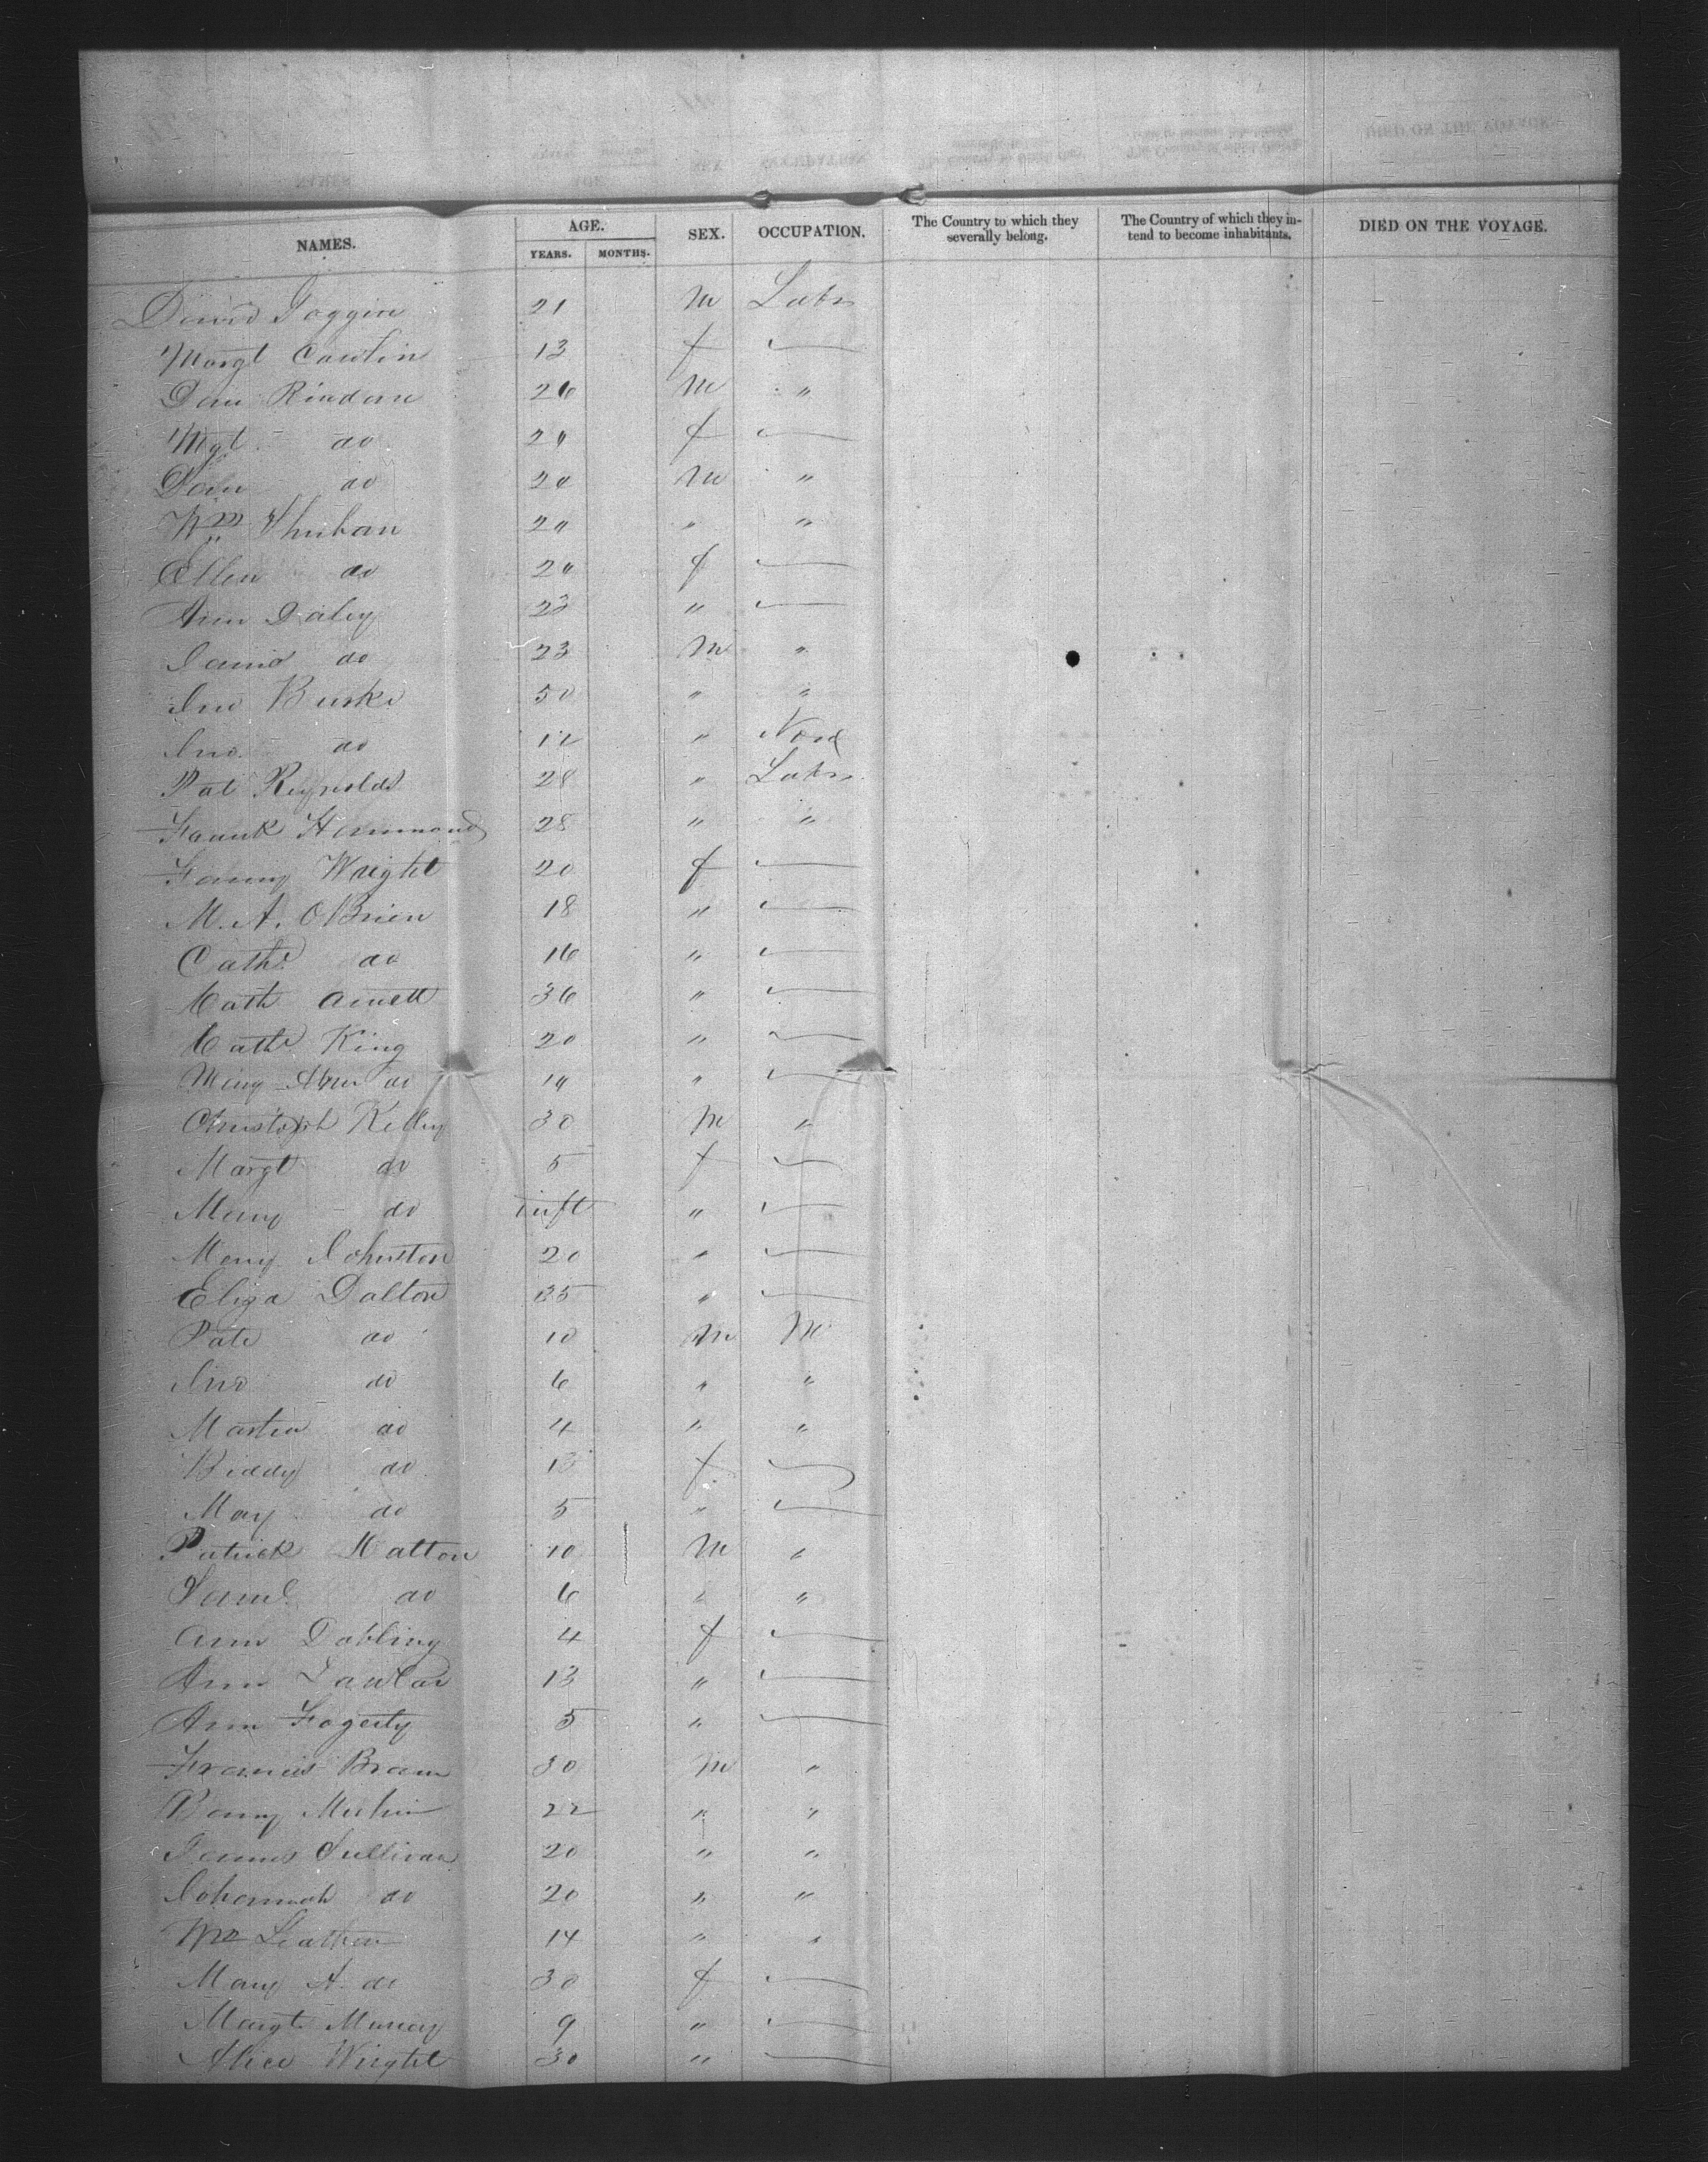 NAMES. AGE. YEARS. MONTHS. SEX. OCCUPATION. The Country to which they severally belong. The Country of which they intend to become inhabitants. DIED ON THE VOYAGE.
David Goggin 21 M Labr
Margt 13 f
Dan 26 M "
Mgt do 20 f
Dan do 20 M "
Wm 20 " "
Ellen do 20 f
Ann Daley 23 "
do 23 M "
Jno Burke 50 " "
Jno. do 12 "
Pat Reynolds 28 " Labr
Frank Hammond 28 " "
Fanny Wright 20 f
M. A. OBrien 18 "
Cathe do 16 "
Cath 36 "
Cathe King 20 "
Mary Ann do "
Christoph Kelly 30 M "
Margt do 5 f
Mary do inft "
Mary Johnston 20 "
Eliza Dalton 35 "
Pat do 10 M
Jno do 6 " "
Martin do 4 " "
Biddy do 13 f
May do 5 "
Patrick Hatton 10 M "
Saml do 6 " "
Ann Dobling 4 f
Ann Lawlor 13 "
Ann Fogerty 5 "
Francis 30 M "
22 " "
James Sullivan 20 " "
Johannah do 20 " "
Wm 14 " "
Mary A. do 30 f
Margt Murray 9 "
Alice Wright 30 "